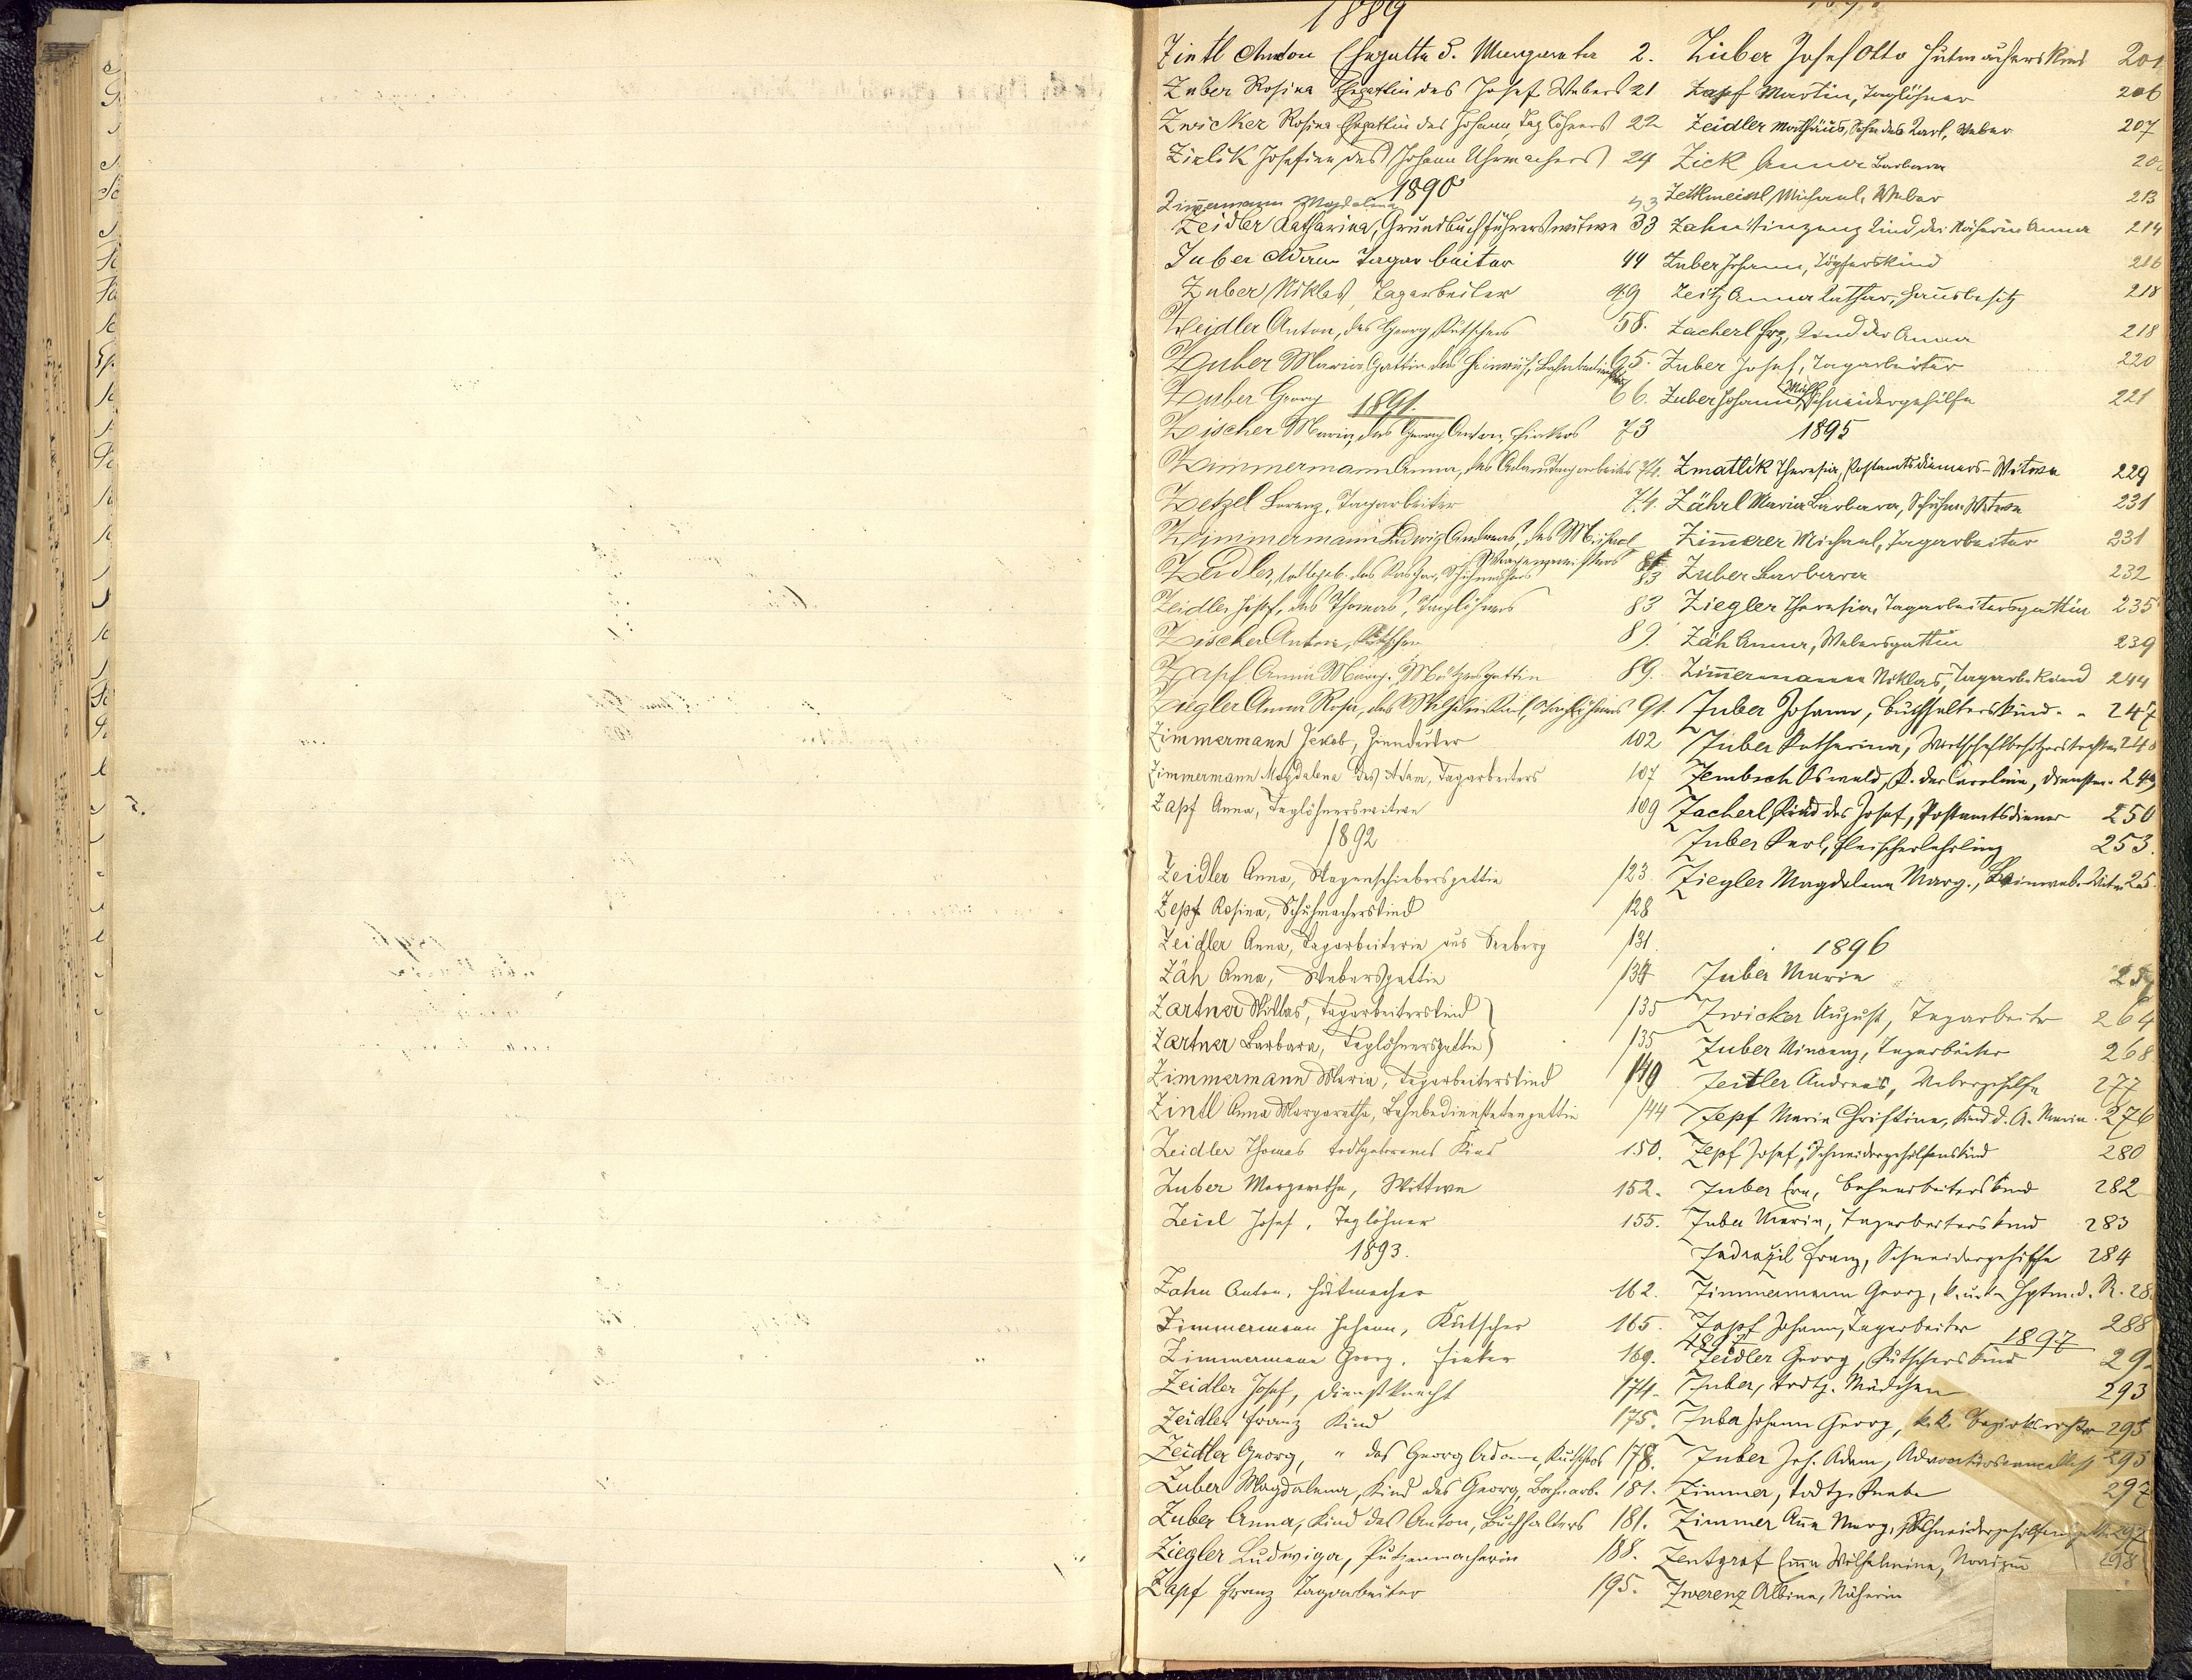 1889
Zintl Anton Ehegatte d. Margaretha 2.
Zuber Rosina Ehegattin des Josef Webers 21
Zwicker Rosina Ehegattin des Johann, Taglöhners 22
Zirlik Josefine des Johann Uhrmachers 24
1890
Zim̅ermann Magdalena 43
Zeidler Katharina, Grundbuchführerswitwe 33
Zuber Adam Tagarbeiter 44
Zuber Niklas, Tagarbeiter 49
Zeidler Anton, des Georg, Kutschers 58.
Zuber Maria Gattin des Heinrich, 65.
Zuber Georg 66.
1891.
Zischer Maria, des Georg Anton, Fiakers 73
Zimmermann Anna, des Adam Tagarbeiters 74.
Zetzel Lorenz, Tagarbeiter 74.
Zimmermann Ludwig Andreas, des Michael
Wagenmeisters
Zeidler, todtgeb. des Kaspar, Schuhmachers 83
Zeidler Josef, des Thomas, Taglöhners 83
Zischer Anton, Kutscher
Zapf Anna Marg. gattin 89.
Zieglerl Anna Rosa, des Taglöhners 91.
Zimmermann Jakob, 102
Zimmermann Magdalena des Adam, Tagarbeiters 107
Zapf Anna, Taglöhnerswitwe 109
1892
Zeidler Anna, Wagenschiebersgattin 123
Zepf Rosina, Schuhmacherskind 128
Zeidler Anna, Tagarbeiterin aus Seeberg 131
Zäh Anna, Webersgattin 134
Zartner Niklas, Tagarbeiterskind 135
Zartner Barbara, Taglöhnersgattin 135
Zimmermann Maria, Tagarbeiterskind 149
Zintl Anna Margaretha, Bahnbedienstetengattin 144
Zeidler Thomas todtgeborenes Kind 150.
Zuber Margaretha, Wittwe 152.
Zeisl Josef, Taglöhner 155.
1893.
Zahn Anton, Hutmacher 162.
Zimmermann Johann, Kutscher 165.
Zimmermann Georg, Fiaker 169.
Zeidler Josef, Dienstknecht 174.
Zeidler Franz Kind 175.
Zeidler Georg, " des Georg Adam, Kutschers 178.
Zuber Magdalena, Kind des Georg, Bahnarb. 181.
Zuber Anna, Kind des Anton, Buchhalters 181.
Ziegler Ludwiga, Putzmacherin 188.
Zapf Franz Tagarbeiter 195.
Zuber Josef Otto Hutmacherskind 201
Zapf Martin, Taglöhner 206
Zeidler Mathäus, Sohn des Karl, Weber 207
Zick Anna Barbara
Zettlmeisl Michael, Weber 213
Zahn Vinzenz Kind der Näherin Anna 214
Zuber Johann, Töpferskind 216
Zeitz Anna Kathar., Hausbesitz 218
Zacherl Frz, Kind der Anna 218
Zuber Josef, Tagarbeiter 220
Zuber Johann, Schneidergehilfe 221
1895
Zmatlik Theresia, Postamtsdieners-Witwe 229
Zährl Maria Barbara, Schuhm. Witwe 231
Zim̅erer Michael, Tagarbeiter 231
Zuber Barbara 232
Ziegler Theresia, Tagarbeitersgattin 235
Zäh Anna, Webersgattin 239
Zim̅ermann Niklas, Tagarb. Kind 244
Zuber Johann, Buchhalterskind 247
Zuber Katharina, Wirtschaftbesitzerstochter 248
Zembsch Oswald, K. der Caroline, Dienstm. 249
Zacherl Kind des Josef, Postamtsdiener 250
Zuber Karl, Fleischerlehrling 253.
Ziegler Magdalena Marg., Leinweb. Witw. 25
1896
Zuber Maria 257
Zwicker August, Tagarbeiter 264
Zuber Vincenz, Tagarbeiter 268
Zeitler Andreas, Webergehilfe 277
Zepf Maria Christine, Kind d. A. Maria. 276
Zepf Josef, Schneidergehilfenskind 280
Zuber Eva, Bahnarbeiterskind 282
Zuber Maria, Tagarbeiterskind 283
Zadrazil Franz, Schneidergehilfe 284
Zimmermann Georg, k. u. k. Hptm. d. R. 28
Zapf Johann, Tagarbeiter 288
1897
Zeidler Georg, Kutscherskind 29
Zuber, todtg. Mädchen 293
Zuber Johann Georg, k.k. Bezirksrichter 295
Zuber Joh. Adam, 295
Zimmer, todtg. Knabe 297
Zimmer Ana Marg., Schneidergehilfensgattin 297
Zentgraf Emma Wilhelmine, 298
Zwerenz Albine, Näherin